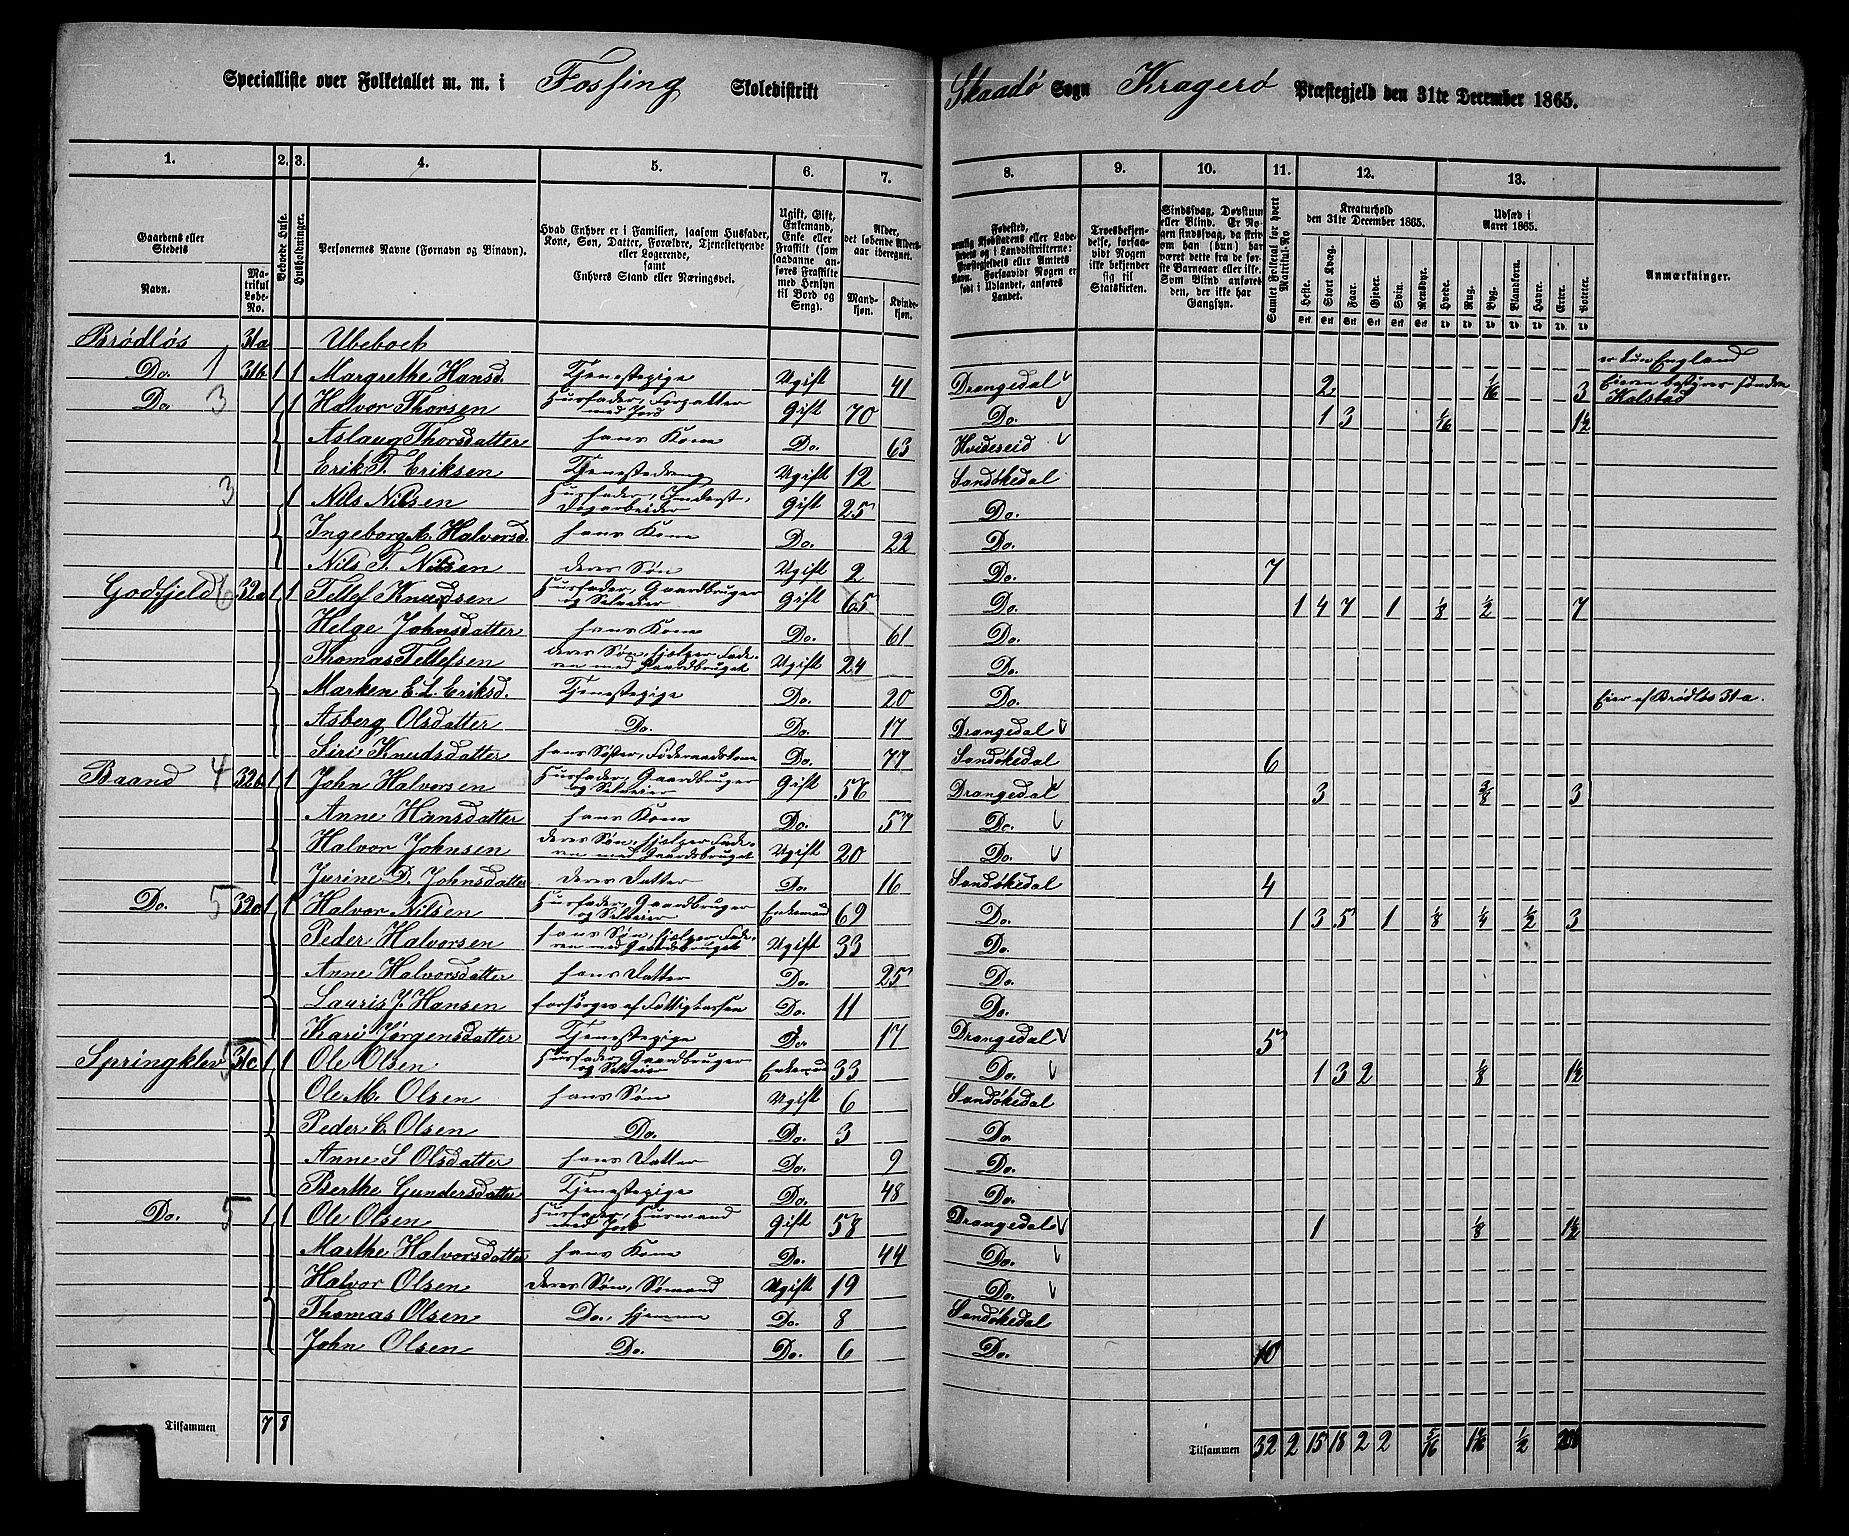 Specialliste over Folketallet m. m. i Fossing Skoledistrikt Skaadø Sogn Kragerø Præstegjeld den 31te December 1865.
1. 2. 3. 4. 5. 6. 7. 8. 9. 10. 11. 12. 13.
Gaardens eller Stedets Navn. Matrikul Løbe-No. Beboede Huse. Husholdninger. Personernes Navne (Fornavn og Binavn).
Hvad Enhver er i Familien, saasom Husfader, Kone, Søn, Datter, Forældre, Tjenestetyende eller Logerende, samt Enhvers Stand eller Næringsvei.
Ugift, Gift, Enkemand, Enke eller Fraskilt (som saadanne anføres Fraskilte med Hensyn til Bord og Seng).
Alder, det løbende Aldersaar iberegnet. Mandkjøn. Kvindekjøn.
Samlet Folketal for hvert Matrikul-No
Kreaturhold den 31te December 1865. Heste. Stort Kvæg. Faar. Gjeder. Svin. Rensdyr.
Udsæd i Aaret 1865. Hvede. Rug. Byg. Blandkorn. Havre. Erter. Poteter.
Anmærkninger.
Brødløs 31a Ubeboet
Do. 1 31b 1 1 Margrethe Hansd. Tjenestepige Ugift 41 Drangedal 2 1/16 3
Do 3 1 1 Halvor Thorsen Husfader, Forpagter med Jord Gift 70 Do. 1 3 1/16 1½
Aslaug Thorsdatter hans Kone Do. 63 Hvideseid
Erik T. Eriksen Tjenestedreng Ugift 12 Sandøkedal
3 1 Nils Nilsen Husfader, Inderst, Dagarbeider Gift 25 Do.
Ingeborg A. Halvorsd. hans Kone Do. 22 Do.
Nils T. Nilsen deres Søn Ugift 2 Do. 7
Godfjeld 6 32a 1 1 Tellef Knudsen Husfader, Gaardbruger og Selveier Gift 65 Do. 1 4 7 1 1/8 ½ 7
Helge Johnsdatter hans Kone Do. 61 Do.
Thomas Tellefsen deres Søn, hjelper Faderen med Gaardbruget Ugift 24 Do.
Marken E. L. Eriksd. Tjenestepige Do. 20 Do. Eier af Brødløs 31a.
Asberg Olsdatter Do. Do. 17 Drangedal
Siri Knudsdatter hans Søster, Føderaadskone Do. 77 Sandøkedal 6
Baand 4 32b 1 1 John Halvorsen Husfader, Gaardbruger og Selveier Gift 56 Drangedal 3 3/8 3
Anne Hansdatter hans Kone Do. 57 Do.
Halvor Johnsen deres Søn, hjelper Faderen med Gaardsbruget Ugift 20 Do.
Jurine D. Johnsdatter deres Datter Do. 16 Sandøkedal 4
Do. 5 32c 1 1 Halvor Nilsen Husfader, Gaardbruger og Selveier Enkemand 69 Do. 1 3 5 1 1/8 ¼ ½ 3
Peder Halvorsen hans Søn, hjelper Faderen med Gaardsbruget Ugift 33 Do.
Anne Halvorsdatter hans Datter Do. 25 Do.
Lauris J. Hansen forsørges af Fattigkassen Do. 11 Do.
Kari Jørgensdatter Tjenestepige Do 17 Drangedal 5
Springklev 5 31c 1 1 Ole Olsen Husfader, Gaardbruger og Selveier Enkemand 33 Do. 1 3 2 1/8 1½
Ole M. Olsen hans Søn Ugift 6 Sandøkedal
Peder C. Olsen Do. Do. 3 Do.
Anne S. Olsdatter hans Datter Do. 9 Do.
Berthe Gundersdatter Tjenestepige Do. 48 Do.
Do. 5 1 1 Ole Olsen Husfader, Husmand med Jord Gift 58 Drangedal 1 1/8 1½
Marthe Halvorsdatter hans Kone Do. 44 Do.
Halvor Olsen deres Søn, Sømand Ugift 19 Do.
Thomas Olsen Do. hjemme Do. 8 Sandøkedal
John Olsen Do. Do. 6 Do. 10
Tilsammen 7 8 Tilsammen 32 2 15 18 2 2 5/16 ½